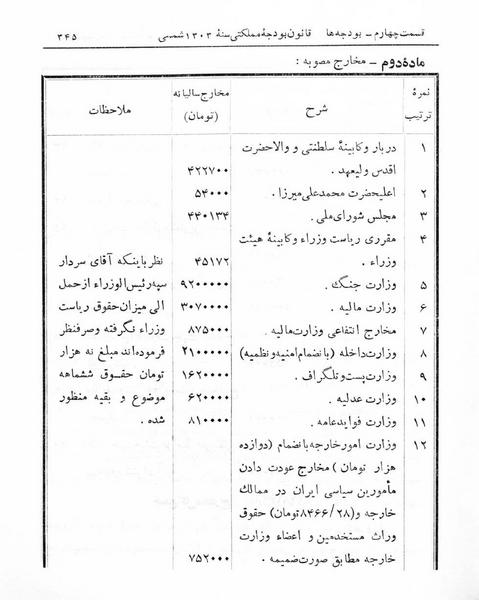 قسمت چهارم ـ بودجه‌ها    قانون بودجهٔ مملکتی سنهٔ ۱۳۰۳ شمسی    ۳۴۵
مادهٔ دوم ـ مخارج مصوبه :
نمرهٔ ترتیب    شرح    مخارج سالیانه (تومان)    ملاحظات
۱    دربار و کابینهٔ سلطنتی و والاحضرت
اقدس ولیعهد .    ۴۲۲۷۰۰
۲    اعلیحضرت محمدعلی میرزا .    ۵۴۰۰۰
۳    مجلس شورای ملی .    ۴۴۰۱۳۴
۴    مقرری ریاست وزراء و کابینهٔ هیئت
وزراء .    ۴۵۱۷۲    نظر باینکه آقای سردار
۵    وزارت جنگ .    ۹۲۰۰۰۰۰    سپه رئیس‌الوزراء از حمل
۶    وزارت مالیه .    ۳۰۷۰۰۰۰    الی میزان حقوق ریاست
۷    مخارج انتفاعی وزارت مالیه .    ۸۷۵۰۰۰    وزراء نگرفته و صرفنظر
۸    وزارت داخله (بانضمام امنیه و نظمیه)    ۲۱۰۰۰۰۰    فرموده‌اند مبلغ نه هزار
۹    وزارت پست و تلگراف .    ۱۶۲۰۰۰۰    تومان حقوق ششماهه
۱۰    وزارت عدلیه .    ۶۲۰۰۰۰    موضوع و بقیه منظور
۱۱    وزارت فوایدعامه .    ۸۱۰۰۰۰    شده .
۱۲    وزارت امور خارجه بانضمام (دوازده
هزار تومان) مخارج عودت دادن
مأمورین سیاسی ایران در ممالک
خارجه و (۸۴۶۶/۲۸ تومان) حقوق
وراث مستخدمین و اعضاء وزارت
خارجه مطابق صورت ضمیمه .    ۷۵۲۰۰۰